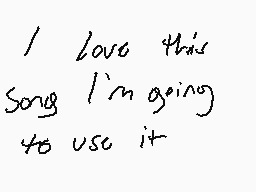 I love this
song I'm going
to use it